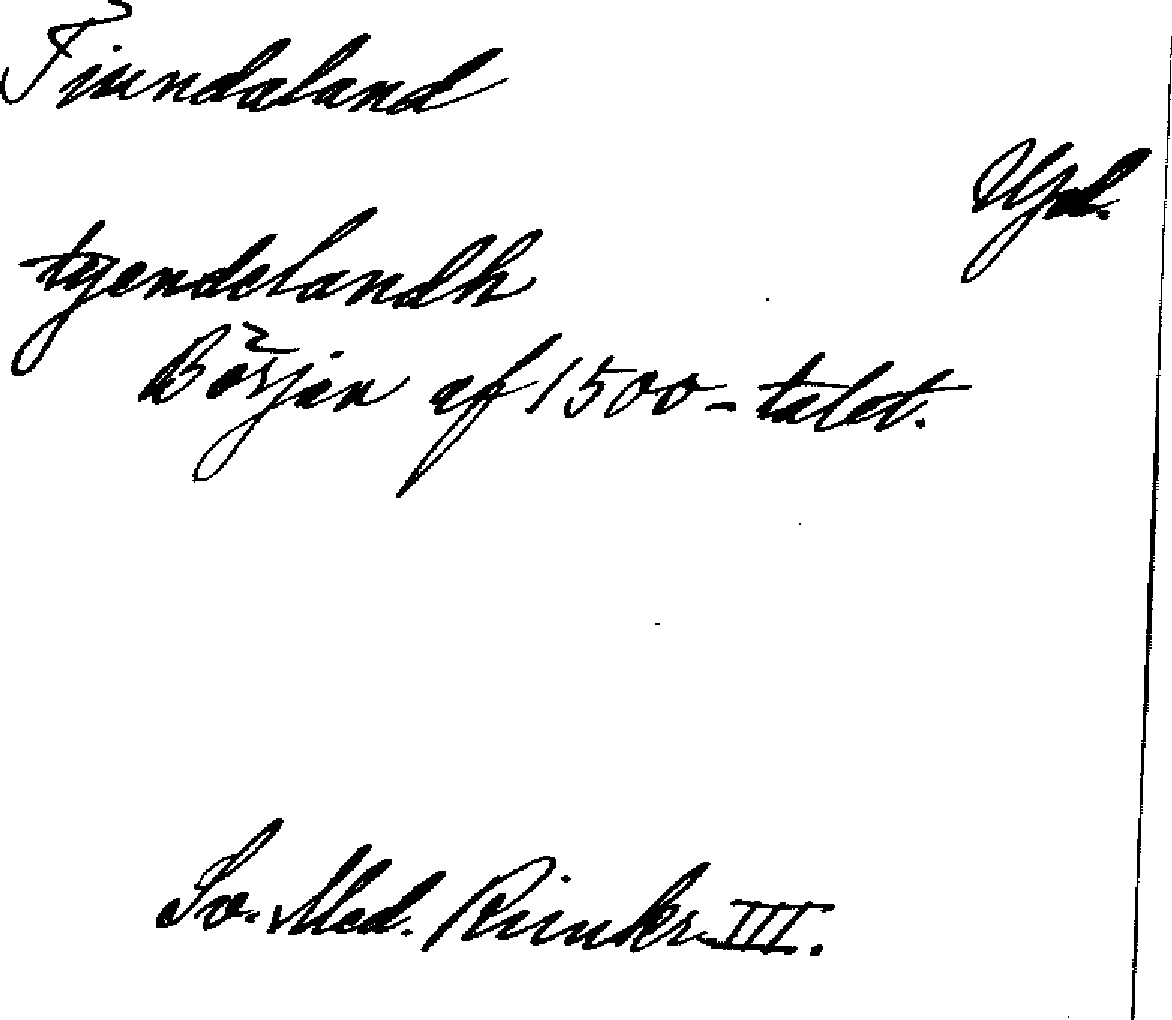 Tiundaland
Upl.
tyendelandh
Början af 1500-talet.
Sv. Med. Rimkr. III.